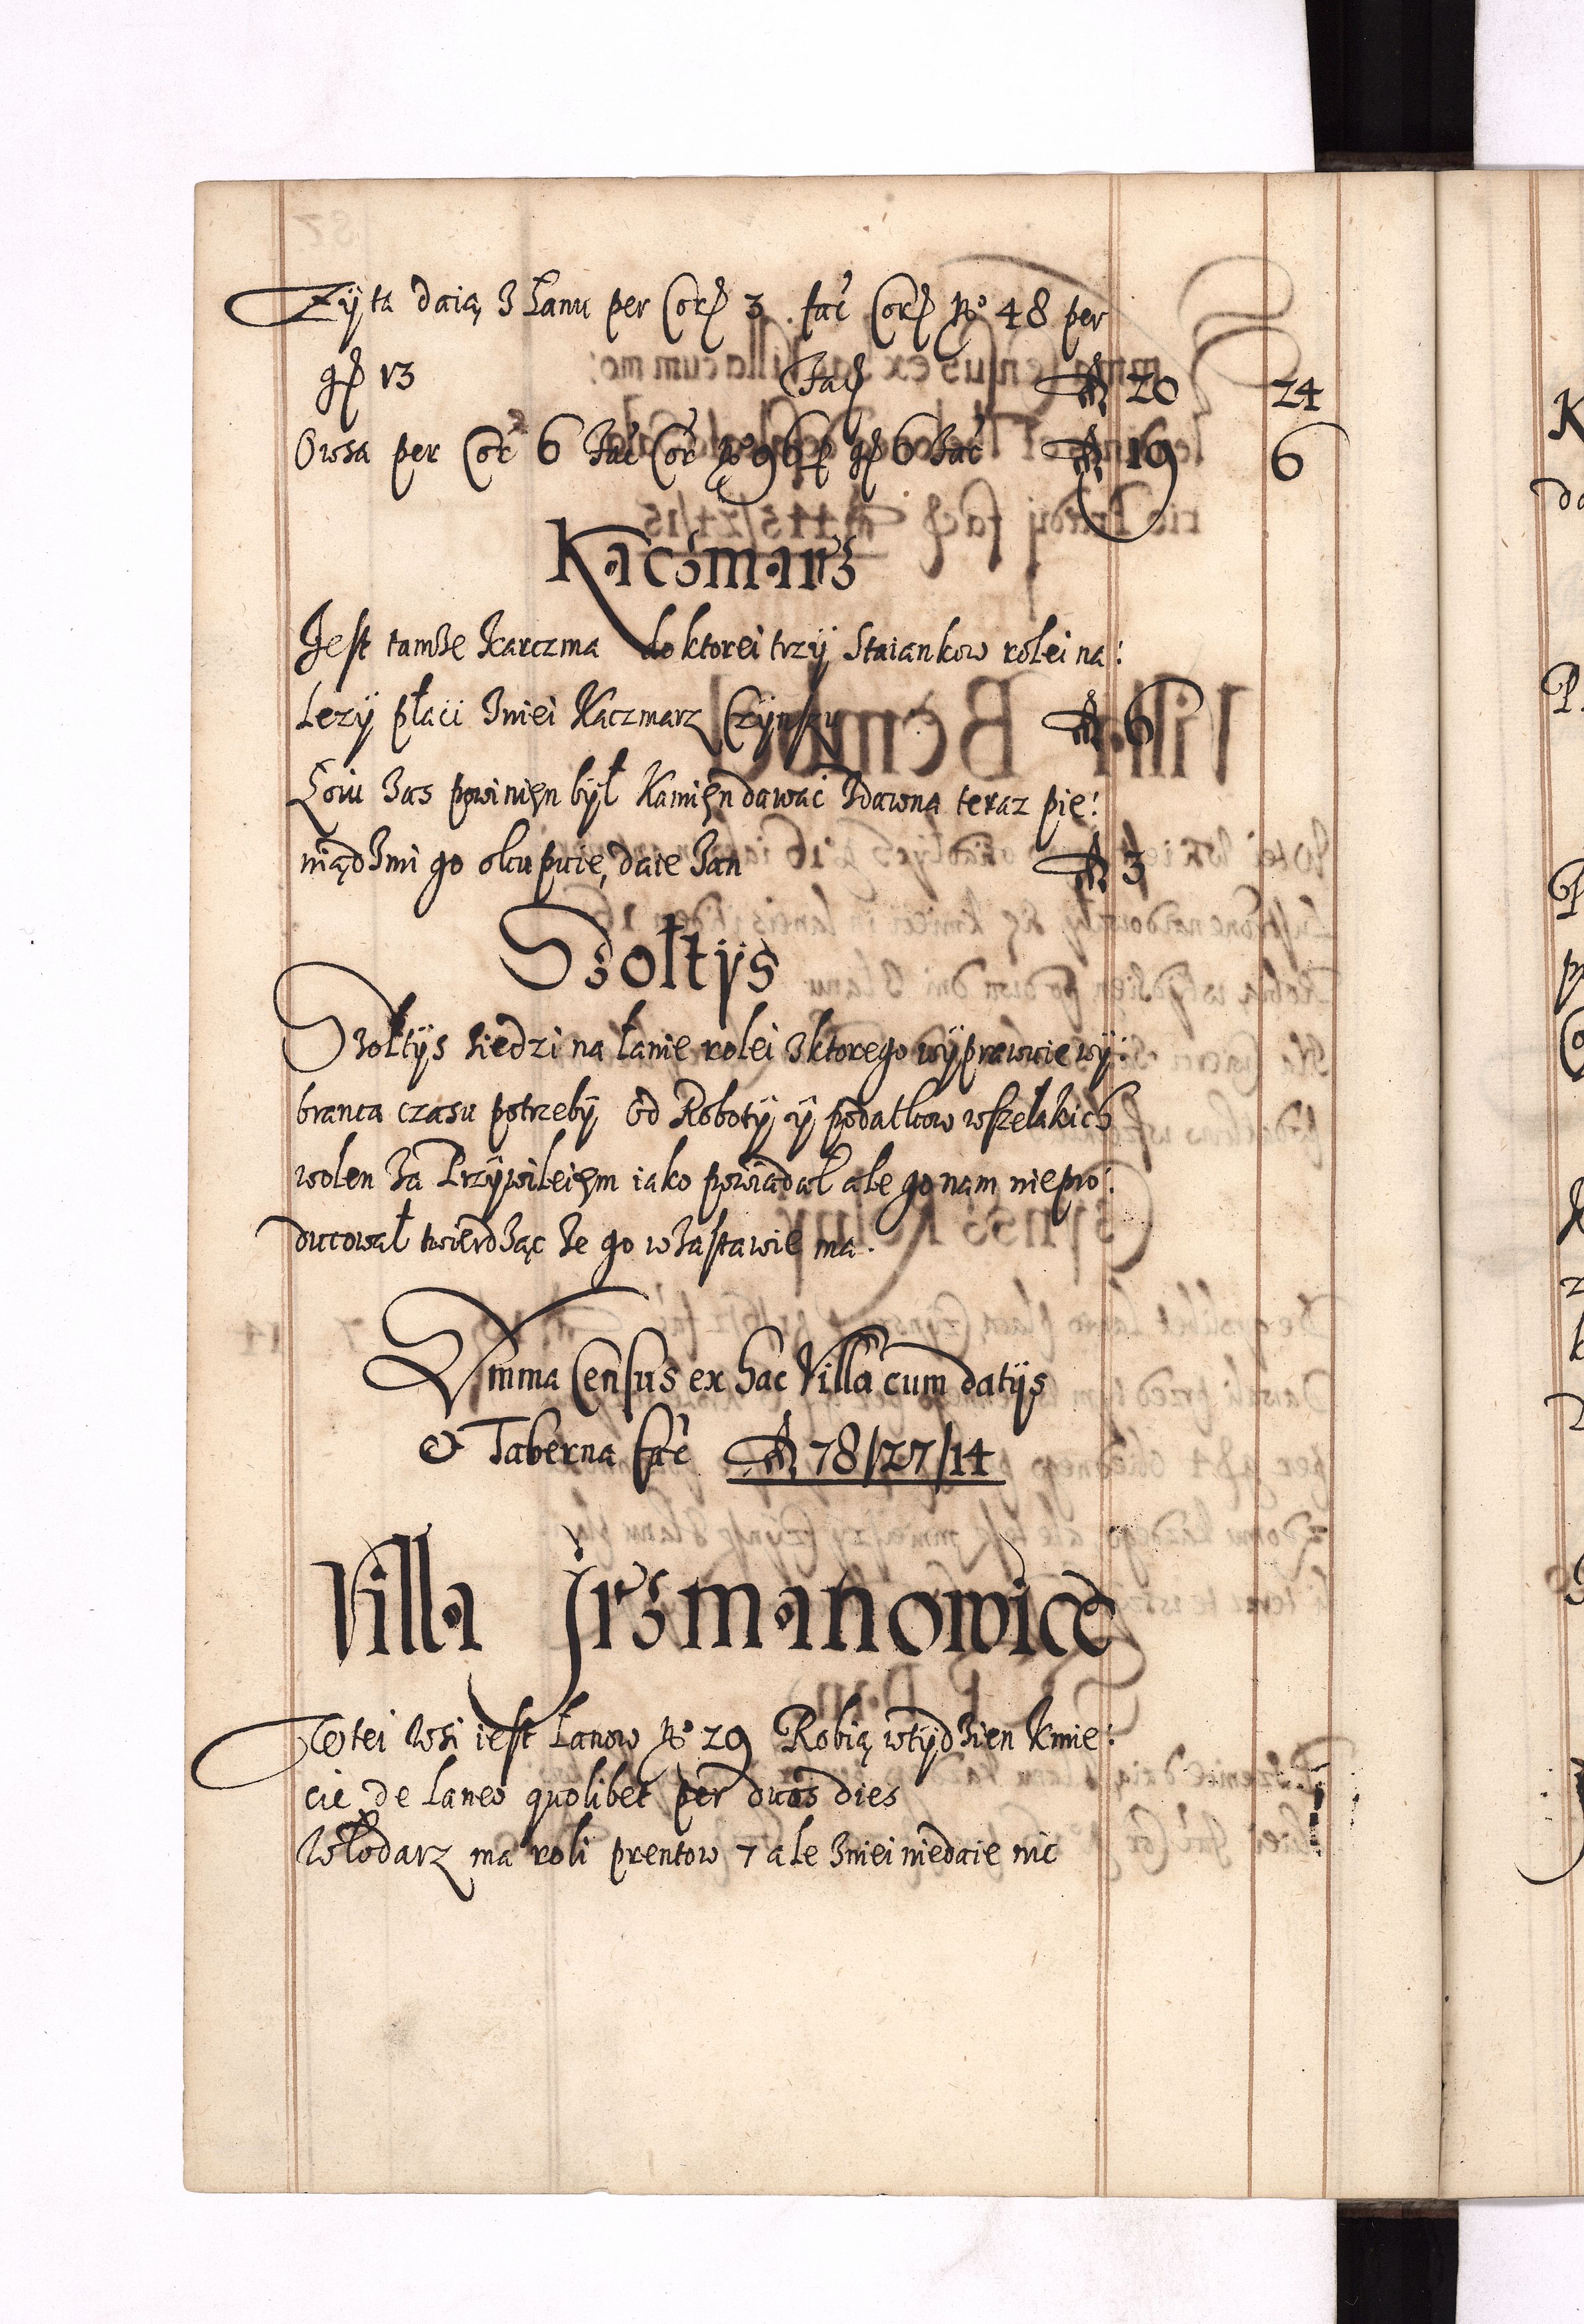 Zÿta daią z Łanu per Cor 3 fac Cor No 48 per
gr 13 Fac fl 20 24
Owsa per Cor 6 Fac Cor No 96 p gr 6 Fac fl 19 6
Kaczmarz
Jest tamże Karczma do ktorei trzÿ Staiankow rolei na:
Lezÿ płaci zniei Kaczmarz Czÿnszu fl 6
Łoiu zas powinięn bÿł Kamięn dawac zdawna teraz pie:
niądzmi go okupuie, daie zan fl 3
Szołtÿs
Szołtÿs siedzi na łanie rolei z ktorego wÿprawuie wÿ:
branca czasu potrzebÿ Od Robotÿ ÿ podatkow wszelakich
wolen za Przÿwileięm iako powiadał ale go nam niepro:
ducował twierdząc ze go w zastawie ma.
Summa Census ex hac Villa cum datÿs
et Taberna fac fl 78/27/14
Villa Jrzmanowice
W tei wsi iest Łanow No 29 Robią w tÿdzien Kmie:
cie de Laneo quolibet per duos dies
Włodarz ma roli prentow 7 ale zniei niedaie nic